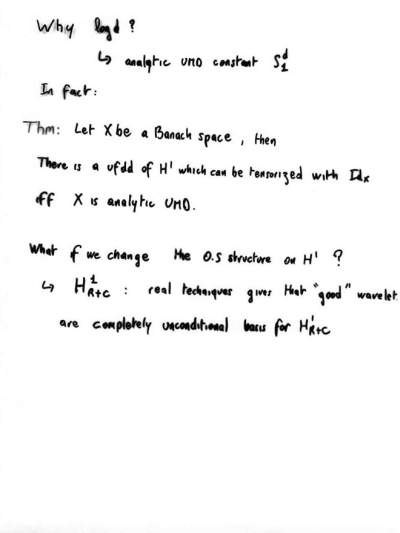 Why log d ?
↳ analytic UMD constant S₁ᵈ
In fact :
Thm : Let X be a Banach space , then
There is a ufdd of H¹ which can be tensorized with Idₓ
iff X is analytic UMD.
What if we change the O.S structure on H¹ ?
↳ H¹_{R+C} : real techniques gives that "good" wavelet
are completely unconditional basis for H¹_{R+C}